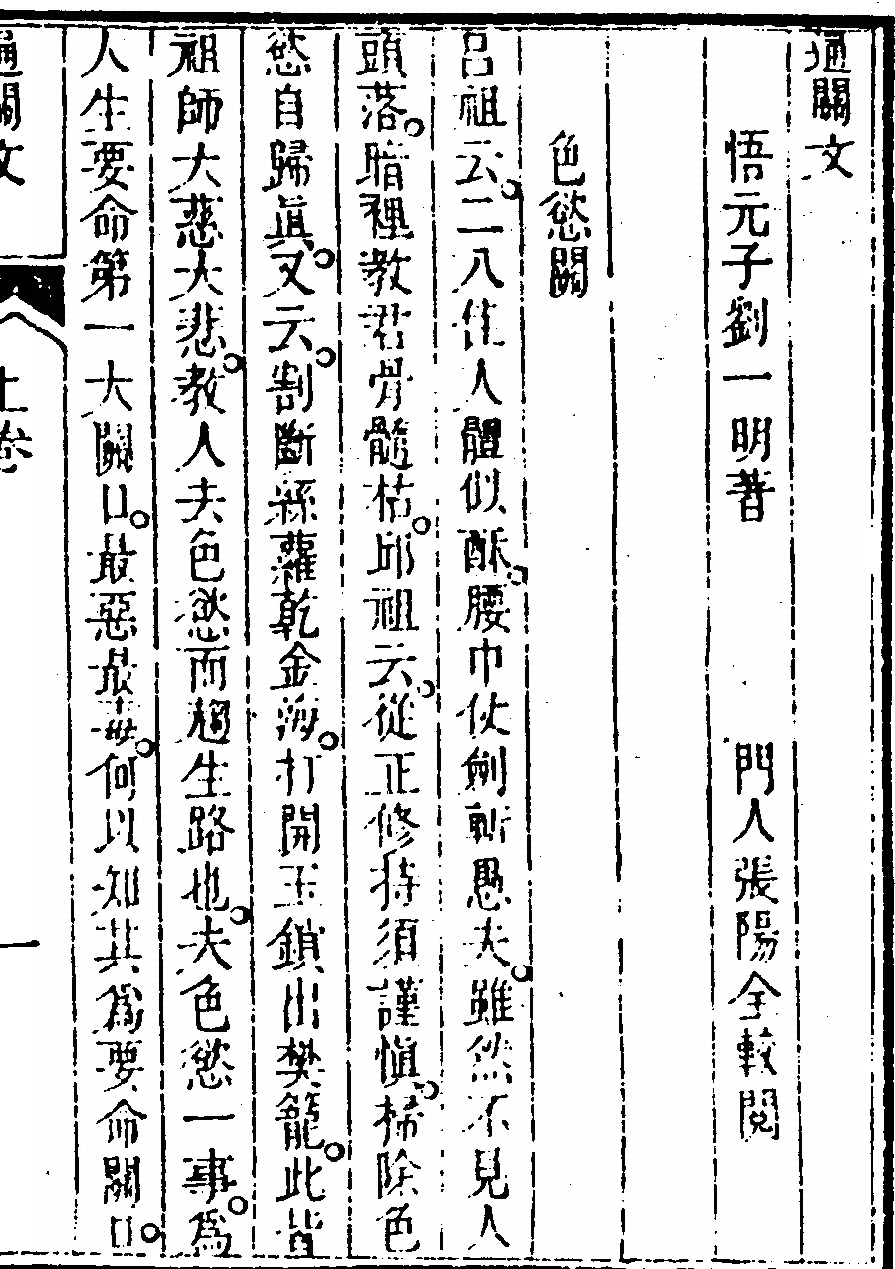 通關文
悟元子劉一明著　門人張陽全較閱
色慾關
呂祖云。二八佳人體似酥。腰巾仗劍斬愚夫。雖然不見人
頭落。暗裡教君骨髓枯。邱祖云。從正修持須謹慎。掃除色
慾自歸眞。又云。割斷絲蘿乾金海。打開玉鎖出樊籠。此皆
祖師大慈大悲。教人去色慾而趨生路也。夫色慾一事。爲
人生要命第一大關口。最惡最毒。何以知其爲要命關口。
通關文　上卷　一